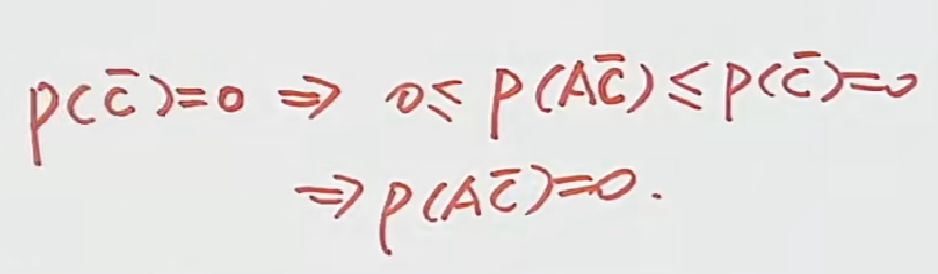 P(C̄)=0 ⇒ 0≤ P(AC̄)≤P(C̄)=0
⇒P(AC̄)=0.